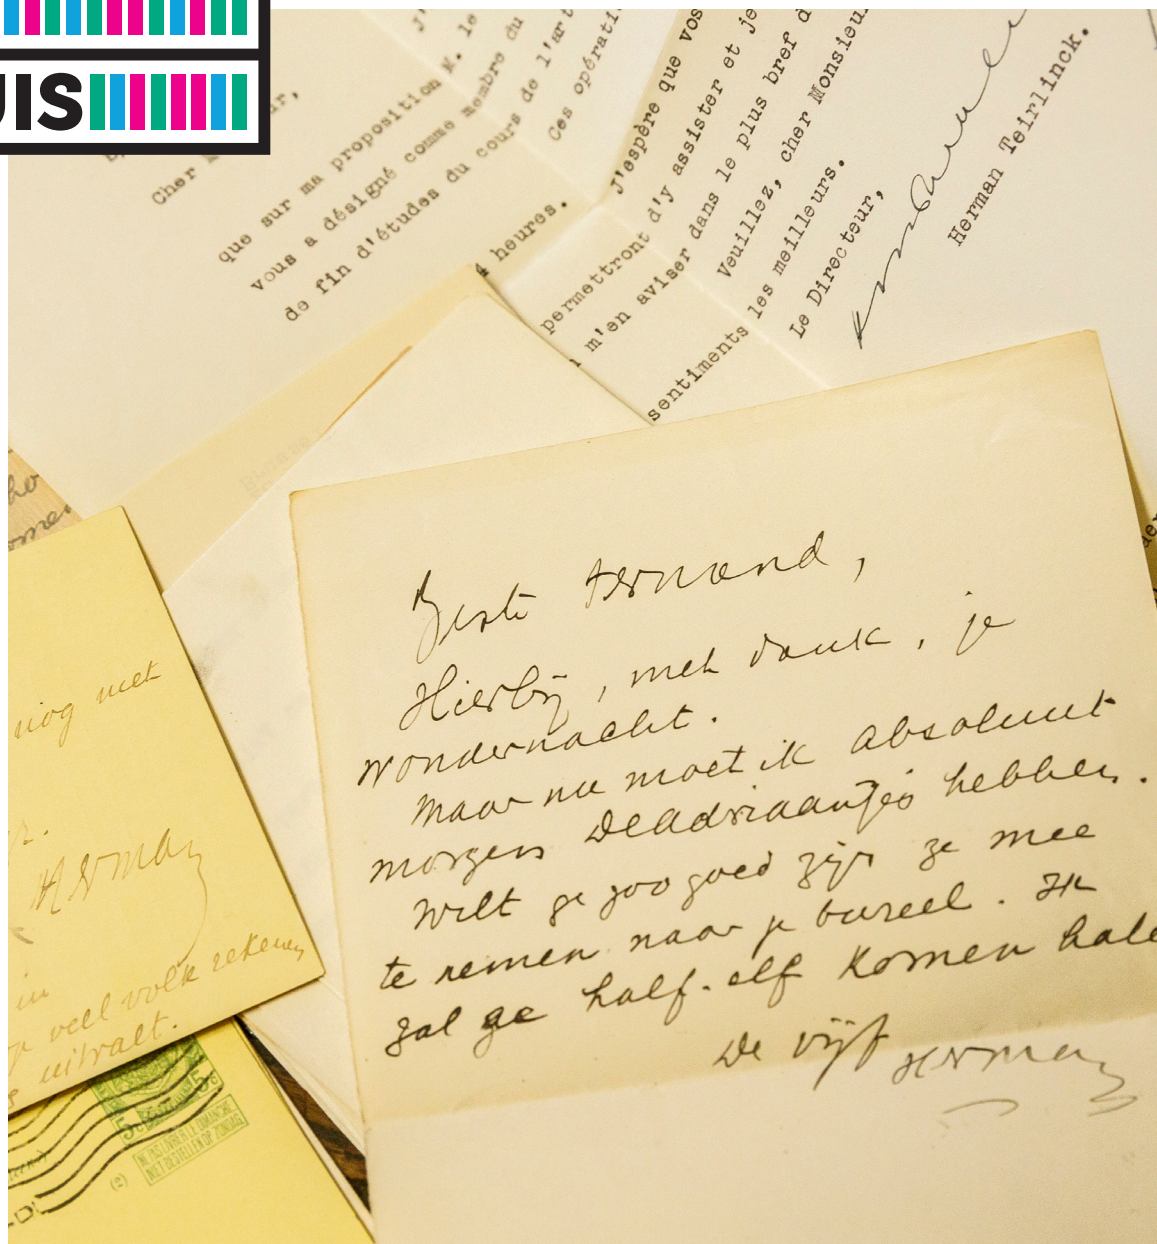 UIS
Cher
que sur ma proposition M. le
vous a désigné comme membre du
de fin d'études du cours de l'art
Ces opérati
4 heures.
J'espère que vos
permettront d'y assister et je
m'en aviser dans le plus bref d
Veuillez, cher Monsieur
sentiments les meilleurs.
Le Directeur,
Herman Teirlinck.
Beste Fernand,
Hierbij, met dank, je
wondernacht.
Maar nu moet ik absoluut
morgen DeAdriaantjes hebben.
Wilt ge zoo goed zijn ze mee
te nemen naar je bureel. Ik
zal ze half-elf komen hale
De vijf Herman
nog met
Herman
in
veel volk rekenen
uitvalt.
5c 5c
NE PAS LIVRER LE DIMANCHE
NIET BESTELLEN OP ZONDAG
(2)